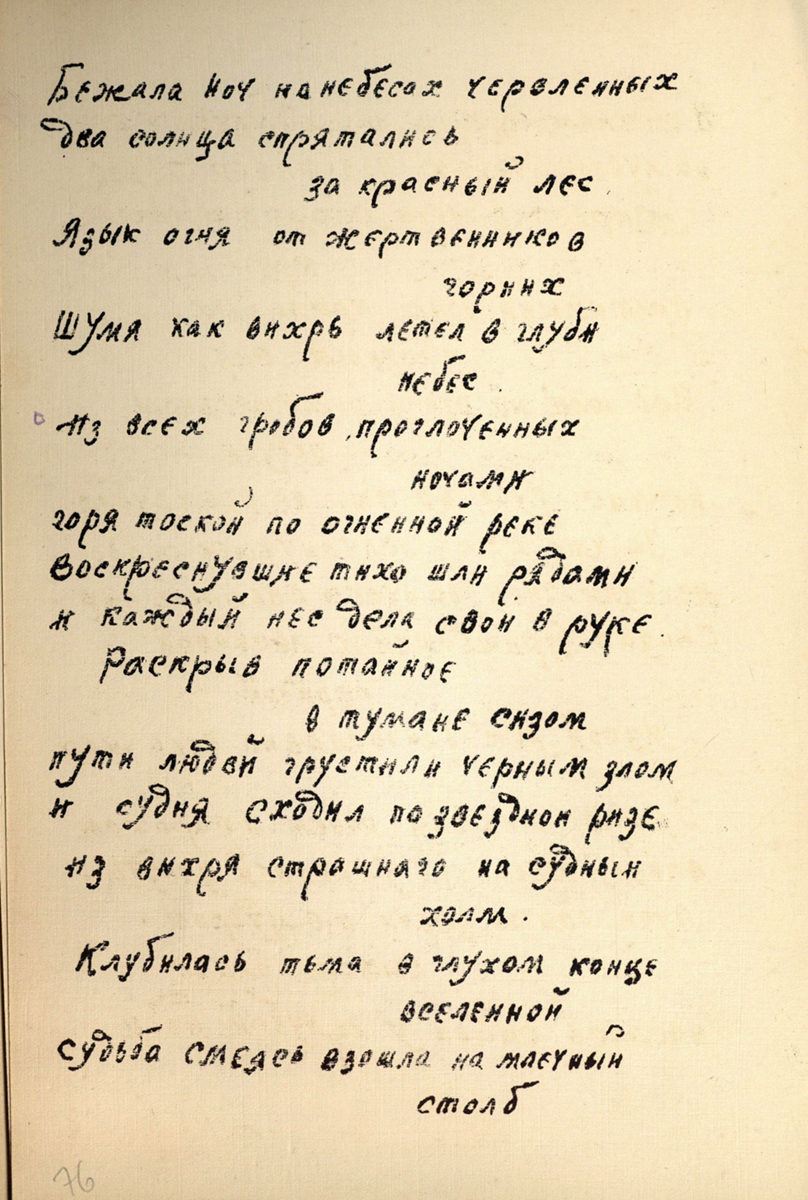 Бежала ноч на небесах червленных
два солнца спрятались
за красный лес.
Язык огня от жертвенников
горних
Шумя как вихрь летел в глуби
небес.
Из всех гробов, проглоченных
ночами
горя тоской по огненной реке
воскреснувшие тихо шли рядами
и каждый нес дела свои в руке.
Раскрыв потайное
в тумане сизом
пути людей грустили черным злом
и судия сходил по звездной ризе
из вихря страшнаго на судным
холм.
Клубилась тьма в глухом конце
вселенной
Судьба смеясь взошла на млечный
столб
76